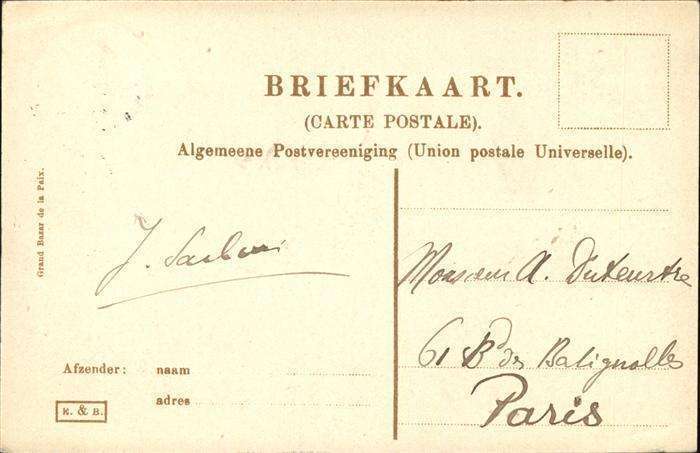 BRIEFKAART.
(CARTE POSTALE).
Algemeene Postvereeniging (Union postale Universelle).
Grand Bazar de la Paix.
J.
Monsieur A. Duteurtre
61 Bd des Batignolles
Paris
Afzender: naam
adres
K. & B.